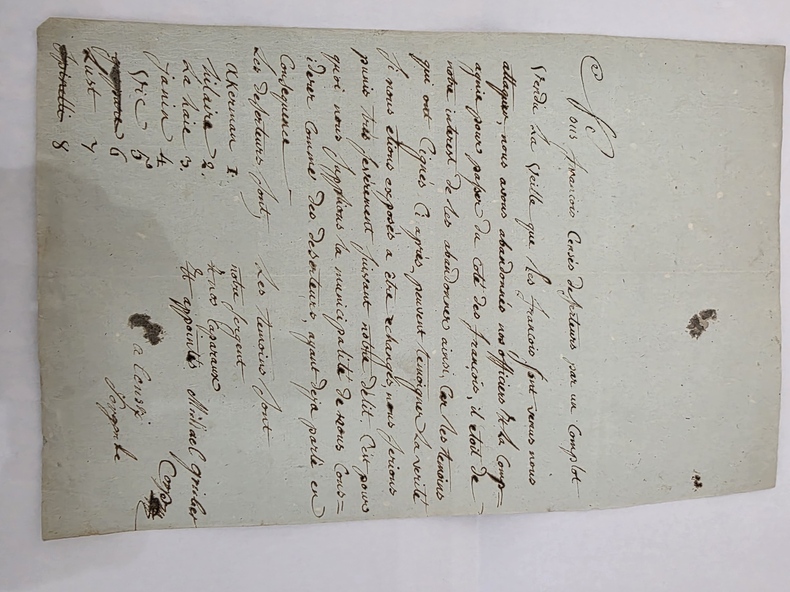 103.
Nous francois Censés deserteurs, par un Complot
Vendu La Veille que les francois sont venus nous
attaquer, nous avons abandonnés nos officiers & la Comp-
agnie pour passer du coté des francois, il étoit de
notre interet de les abandonner ainsi, Car les temoins
qui ont signés Ci après, peuvent temoigner La verité
Si nous étions exposés a être echangés, nous serions
punis très severement suivant notre délit. C'est pour
quoi nous supplions la municipalité de nous Cons-
iderer Comme des deserteurs, ayant deja parlé en
Consequence
Les deserteurs sont, Les temoins sont
Akerman 1.
hilaire 2. notre sergent
La haie 3. Deux Caporaux
janin 4 Et appointés Michael Gruber
Vic 5
6
Lust 7 a Conski
8